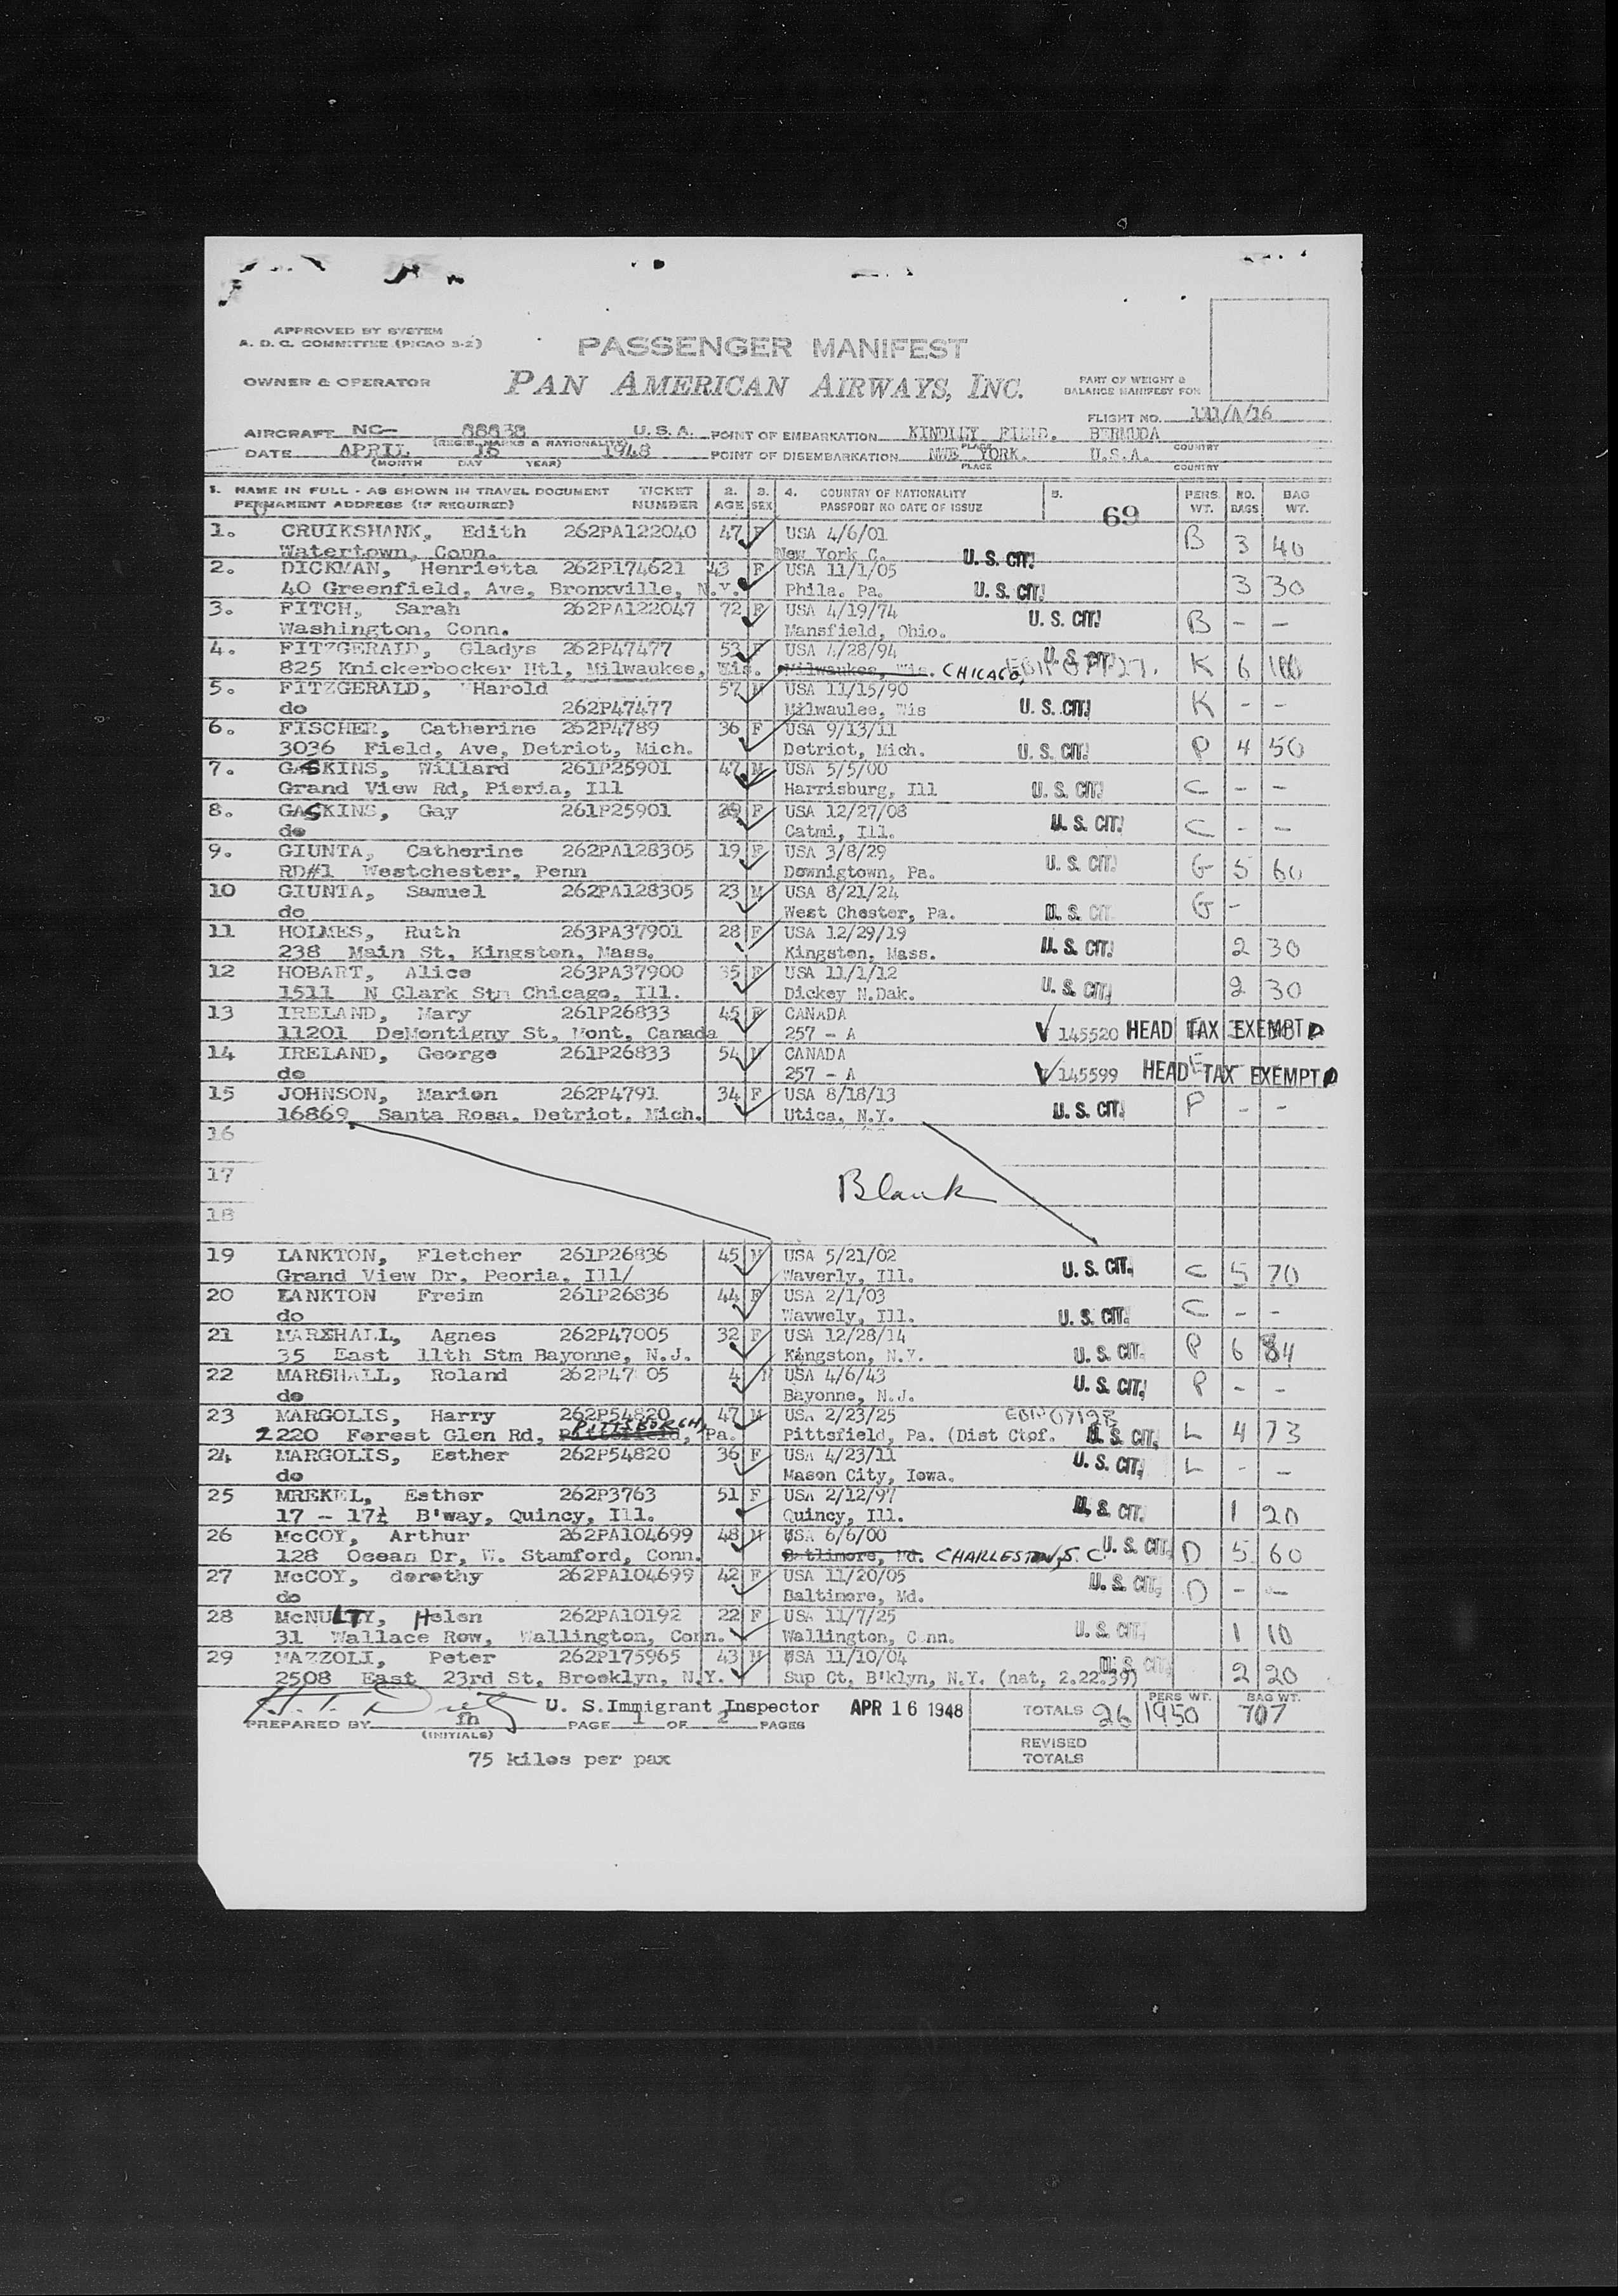 APPROVED BY SYSTEM
A. D. C. COMMITTEE (PICAO 3-2)
PASSENGER MANIFEST
OWNER & OPERATOR PAN AMERICAN AIRWAYS, INC.
PART OF WEIGHT &
BALANCE MANIFEST FOR
FLIGHT NO. 121/A/16
AIRCRAFT NC- U.S.A. POINT OF EMBARKATION KINDLEY FIELD. BERMUDA
(REGIS. MARKS & NATIONALITY) PLACE COUNTRY
DATE APRIL 16 1948 POINT OF DISEMBARKATION NWE YORK. U.S.A.
(MONTH DAY YEAR) PLACE COUNTRY
1. NAME IN FULL - AS SHOWN IN TRAVEL DOCUMENT TICKET 2. 3. 4. COUNTRY OF NATIONALITY 5. PERS. NO. BAG
PERMAMENT ADDRESS (IF REQUIRED) NUMBER AGE SEX PASSPORT NO DATE OF ISSUE 69 WT. BAGS WT.
1. CRUIKSHANK, Edith 262PA122040 47 F USA 4/6/01 B 3 40
Watertown, Conn. New York C. U. S. CIT.
2. DICKMAN, Henrietta 262P174621 43 F USA 11/1/05 3 30
40 Greenfield, Ave, Bronxville, N.Y. Phila. Pa. U. S. CIT.
3. FITCH, Sarah 262PA122047 72 F USA 4/19/74 U. S. CIT. B - -
Washington, Conn. Mansfield, Ohio.
4. FITZGERALD, Gladys 262P47477 53 F USA 4/28/94 U. S. CIT. K 6
825 Knickerbocker Htl, Milwaukee, Wis. Milwaukee, Wis. CHICAGO,
5. FITZGERALD, Harold 57 M USA 11/15/90 K - -
do 262P47477 Milwaulee, Wis U. S. CIT.
6. FISCHER, Catherine 262P4789 36 F USA 9/13/11 P 4 50
3036 Field, Ave, Detriot, Mich. Detriot, Mich. U. S. CIT.
7. GASKINS, Willard 261P25901 47 M USA 5/5/00 C - -
Grand View Rd, Pieria, Ill Harrisburg, Ill U. S. CIT.
8. GASKINS, Gay 261P25901 39 F USA 12/27/08 C - -
do Catmi, Ill. U. S. CIT.
9. GIUNTA, Catherine 262PA128305 19 F USA 3/8/29 G 5 60
RD#1 Westchester, Penn Downigtown, Pa. U. S. CIT.
10 GIUNTA, Samuel 262PA128305 23 M USA 8/21/24 G -
do West Chester, Pa. U. S. CIT.
11 HOLMES, Ruth 263PA37901 28 F USA 12/29/19 2 30
238 Main St, Kingston, Mass. Kingston, Mass. U. S. CIT.
12 HOBART, Alice 263PA37900 35 F USA 11/1/12 2 30
1511 N Clark Stn Chicago, Ill. Dickey N.Dak. U. S. CIT.
13 IRELAND, Mary 261P26833 45 F CANADA
11201 DeMontigny St, Mont, Canada 257 - A 145520 HEAD TAX EXEMPT
14 IRELAND, George 261P26833 54 M CANADA
do 257 - A 145599 HEAD TAX EXEMPT
15 JOHNSON, Marion 262P4791 34 F USA 8/18/13 P - -
16869 Santa Rosa, Detriot, Mich. Utica, N.Y. U. S. CIT.
16
17 Blank
18
19 LANKTON, Fletcher 261P26836 45 M USA 5/21/02 C 5 70
Grand View Dr, Peoria, Ill/ Waverly, Ill. U. S. CIT.
20 LANKTON Freim 261P26836 44 F USA 2/1/03 C - -
do Wavwely, Ill. U. S. CIT.
21 MARSHALL, Agnes 262P47005 32 F USA 12/28/14 P 6 84
35 East 11th Stm Bayonne, N.J. Kingston, N.Y. U. S. CIT.
22 MARSHALL, Roland 262P47 05 4 M USA 4/6/43 P - -
do Bayonne, N.J. U. S. CIT.
23 MARGOLIS, Harry 262P54820 47 M USA 2/23/25 L 4 73
2220 Forest Glen Rd, Pittsfield, PITTSBURGH, Pa. Pittsfield, Pa. (Dist Ctof. U. S. CIT.
24 MARGOLIS, Esther 262P54820 36 F USA 4/23/11 L - -
do Mason City, Iowa. U. S. CIT.
25 MREKEL, Esther 262P3763 51 F USA 2/12/97 1 20
17 - 17½ B'way, Quincy, Ill. Quincy, Ill. U. S. CIT.
26 McCOY, Arthur 262PA104699 48 M USA 6/6/00 D 5 60
128 Ocean Dr, W. Stamford, Conn. Batlimore, Md. CHARLESTON, S. C. U. S. CIT.
27 McCOY, dorothy 262PA104699 42 F USA 11/20/05 D - -
do Baltimore, Md. U. S. CIT.
28 McNULTY, Helen 262PA10192 22 F USA 11/7/25 1 10
31 Wallace Row, Wallington, Conn. Wallington, Conn. U. S. CIT.
29 MAZZOLI, Peter 262P175965 43 M USA 11/10/04 U. S. CIT. 2 20
2508 East 23rd St, Brooklyn, N.Y. Sup Ct, B'klyn, N.Y. (nat, 2.22.39)
U. S. Immigrant Inspector APR 16 1948 TOTALS 26 PERS WT. 1950 BAG WT. 707
PREPARED BY fh PAGE 1 OF 2 PAGES
(INITIALS) REVISED
TOTALS
75 kilos per pax